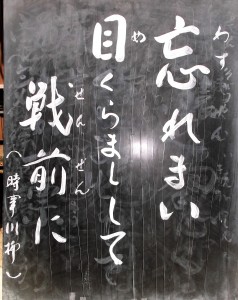 わす
忘れまい
め
目くらましして
せんぜん
戦前に
(時事川柳)